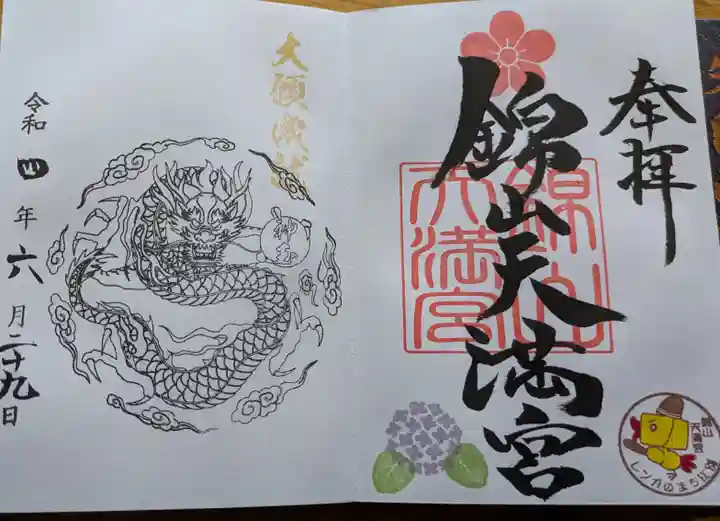 奉拝
錦山天満宮
錦山
天満宮
錦山
天満宮
レンガのまち江別
大願成就
神玉
令和四年六月二十九日